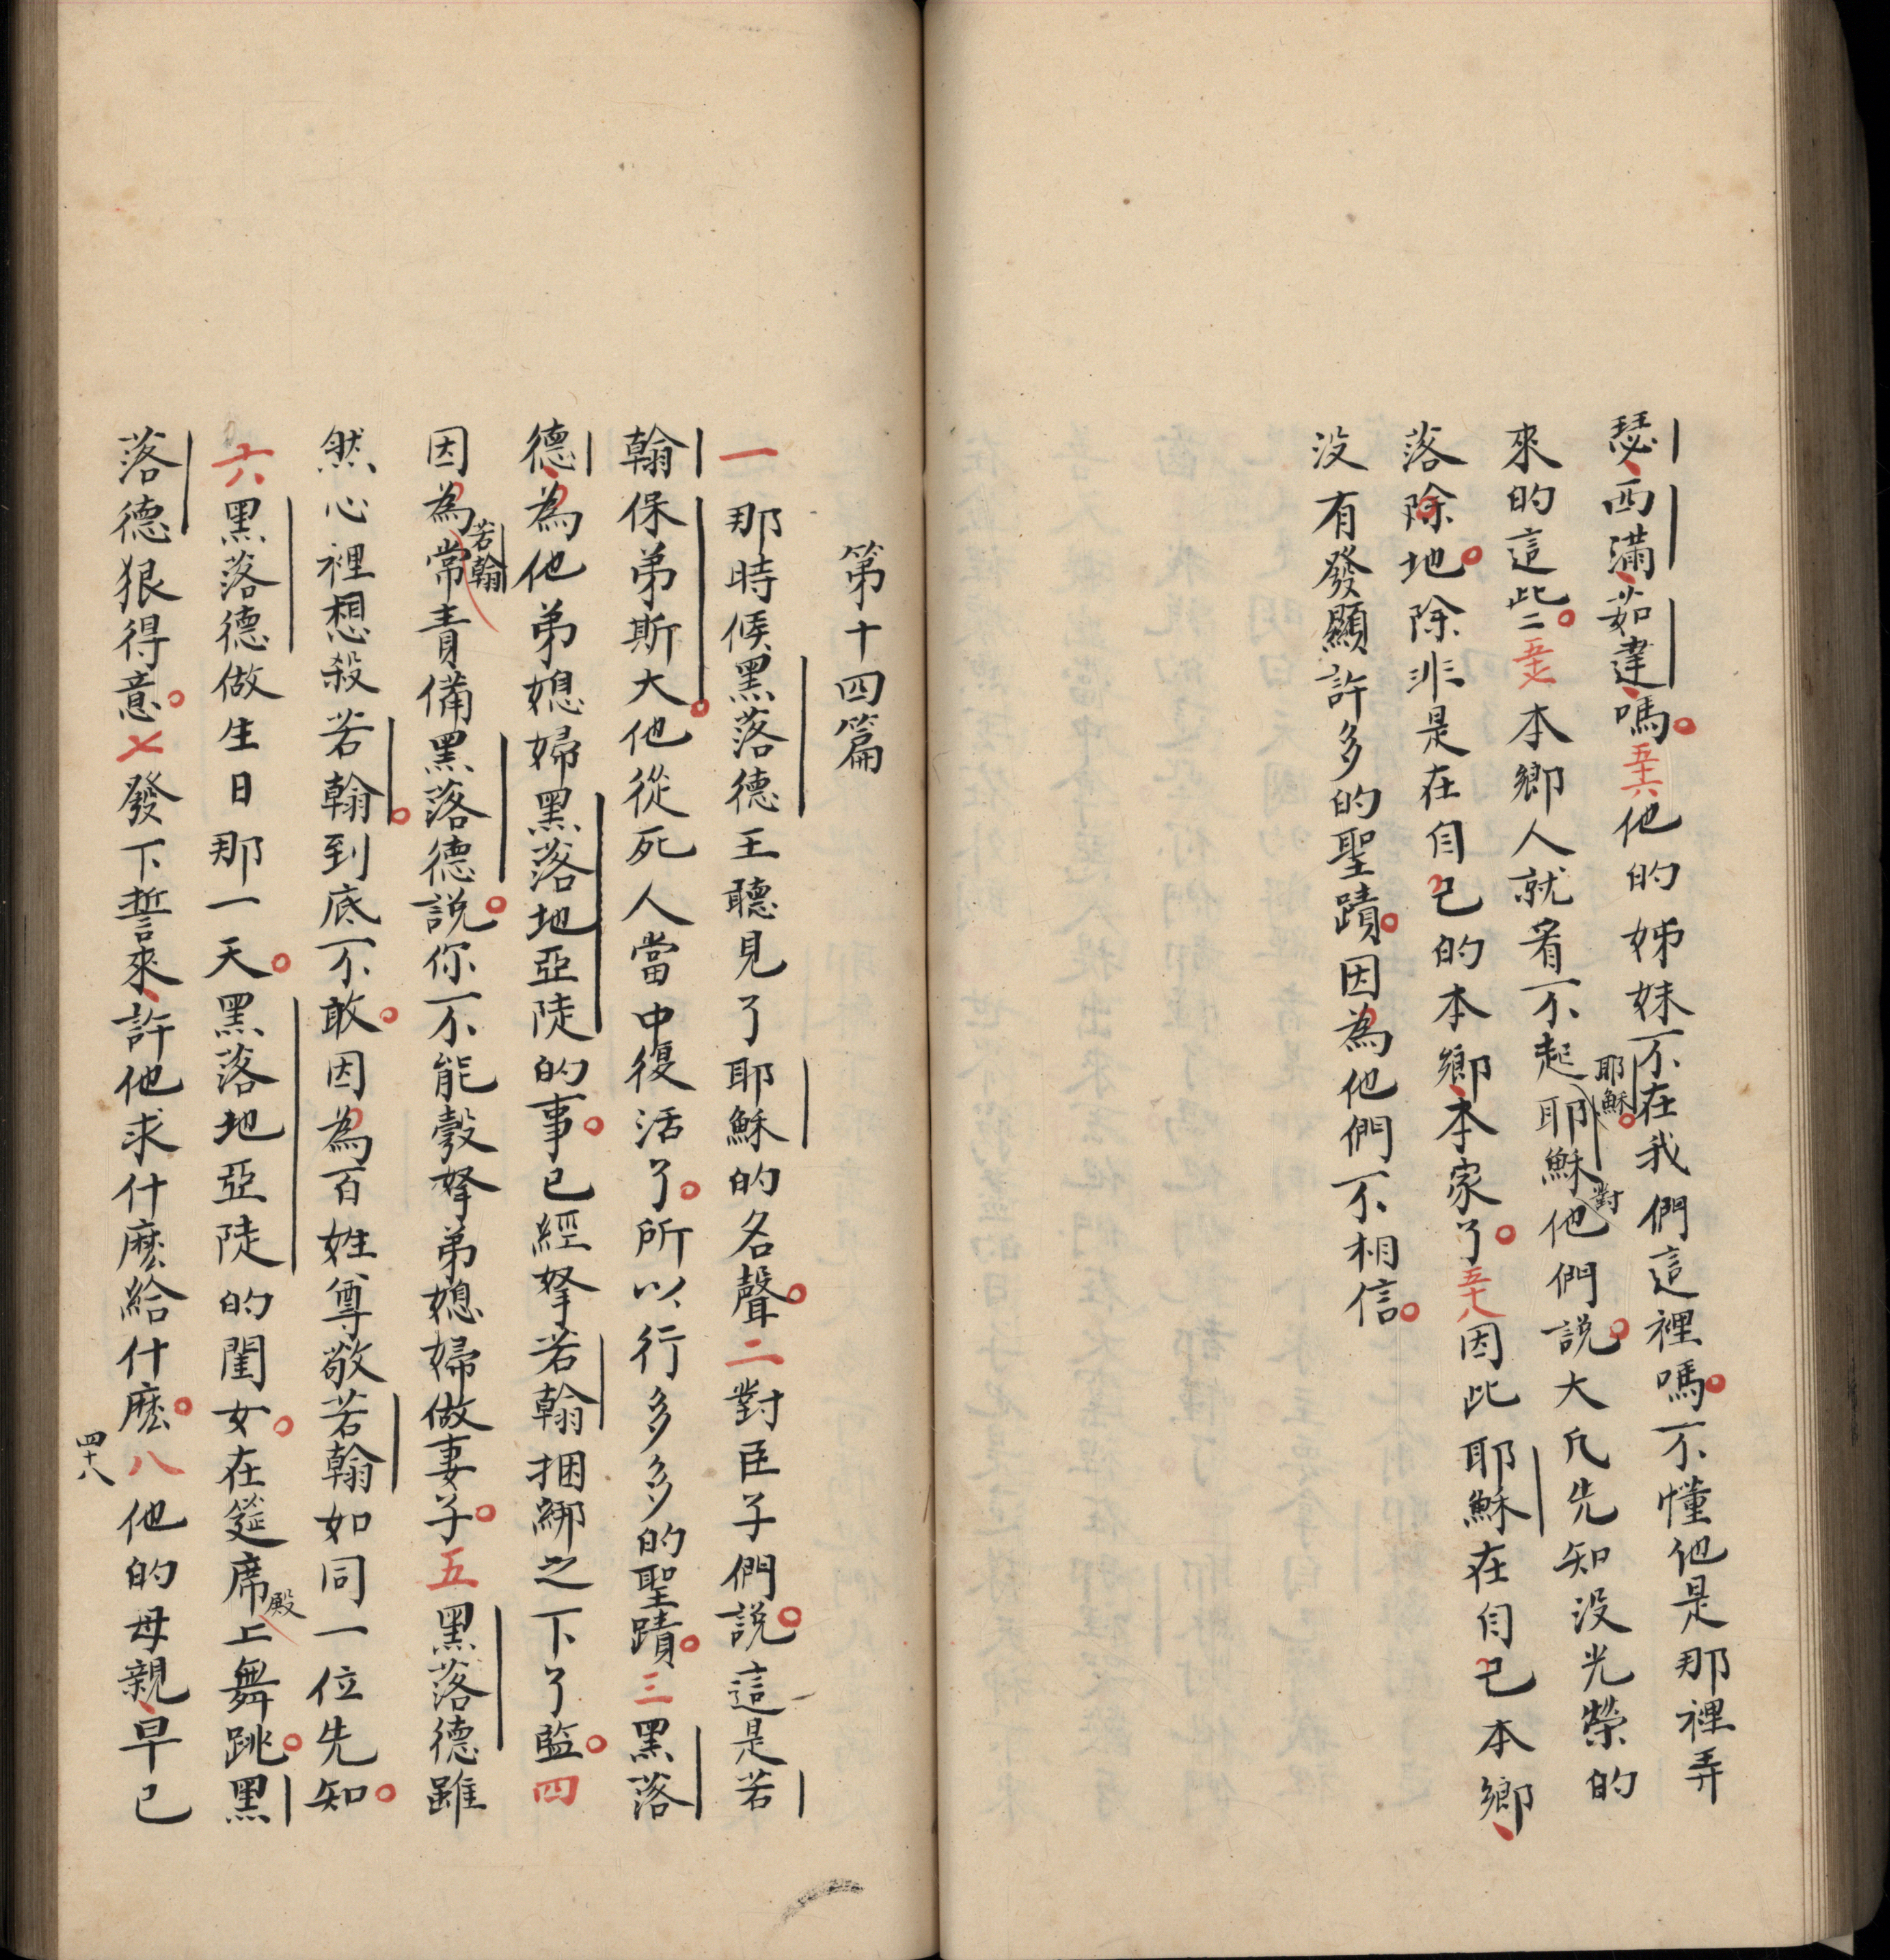 瑟西滿茹達嗎五十六他的姊妹不在我們這裡嗎不懂他是那裡弄
來的這些二五十七本鄉人就看不起耶穌他們說大凡先知没光榮的
耶穌
對
落除地除非是在自己的本鄉本家了五十八因此耶穌在自己本鄉
没有發顯許多的聖蹟因為他們不相信
第十四篇
一那時候黑落德王聽見了耶穌的名聲二對臣子們說這是若
翰保弟斯大他從死人當中復活了所以行多多的聖蹟三黑落
德為他弟媳婦黑落地亞陡的事已經拏若翰捆綁之下了監四
因為常責備黑落德說你不能彀拏弟媳婦做妻子五黑落德雖
若翰
然心裡想殺若翰到底不敢因為百姓尊敬若翰如同一位先知
六黑落德做生日那一天黑落地亞陡的閨女在筵席上舞跳黑
殿
落德狠得意七發下誓來許他求什麽給什麽八他的母親早已
四十八